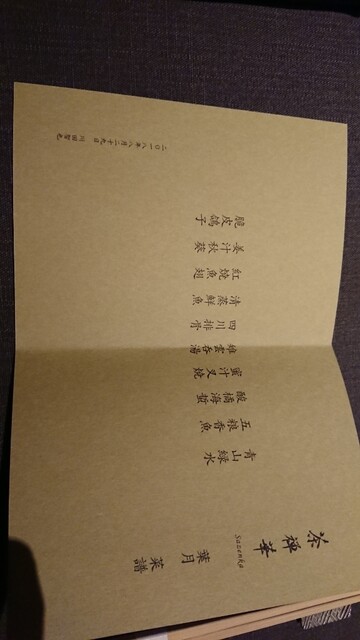 茶禅華
Sazenka
葉月菜譜
青山緑水
五粮香魚
酸橘海蜇
蜜汁叉焼
雉雲呑湯
四川排骨
清蒸鮮魚
紅焼魚翅
姜汁秋葵
脆皮鴿子
二〇一八年八月二十九日 川田智也